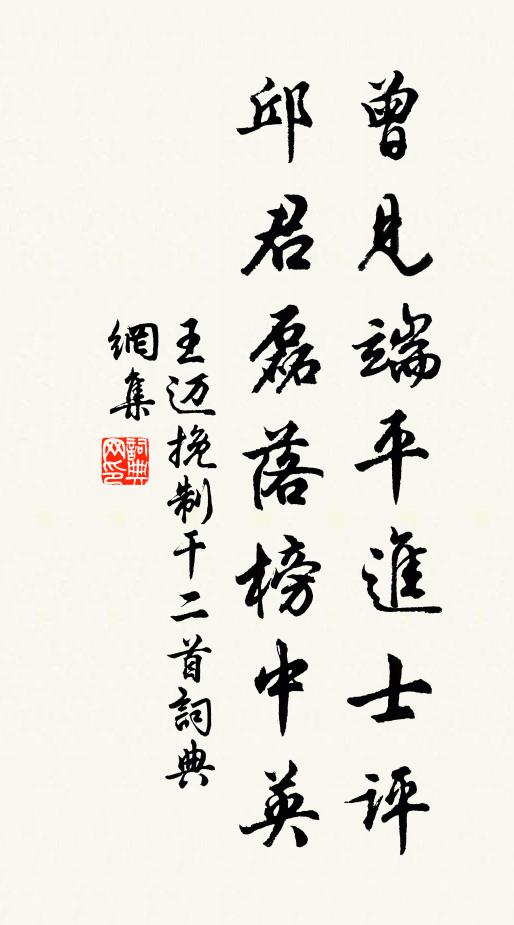 曾見端平進士評
邱君磊落榜中英
王迈挽制干二首詞典
網集
詞典网印